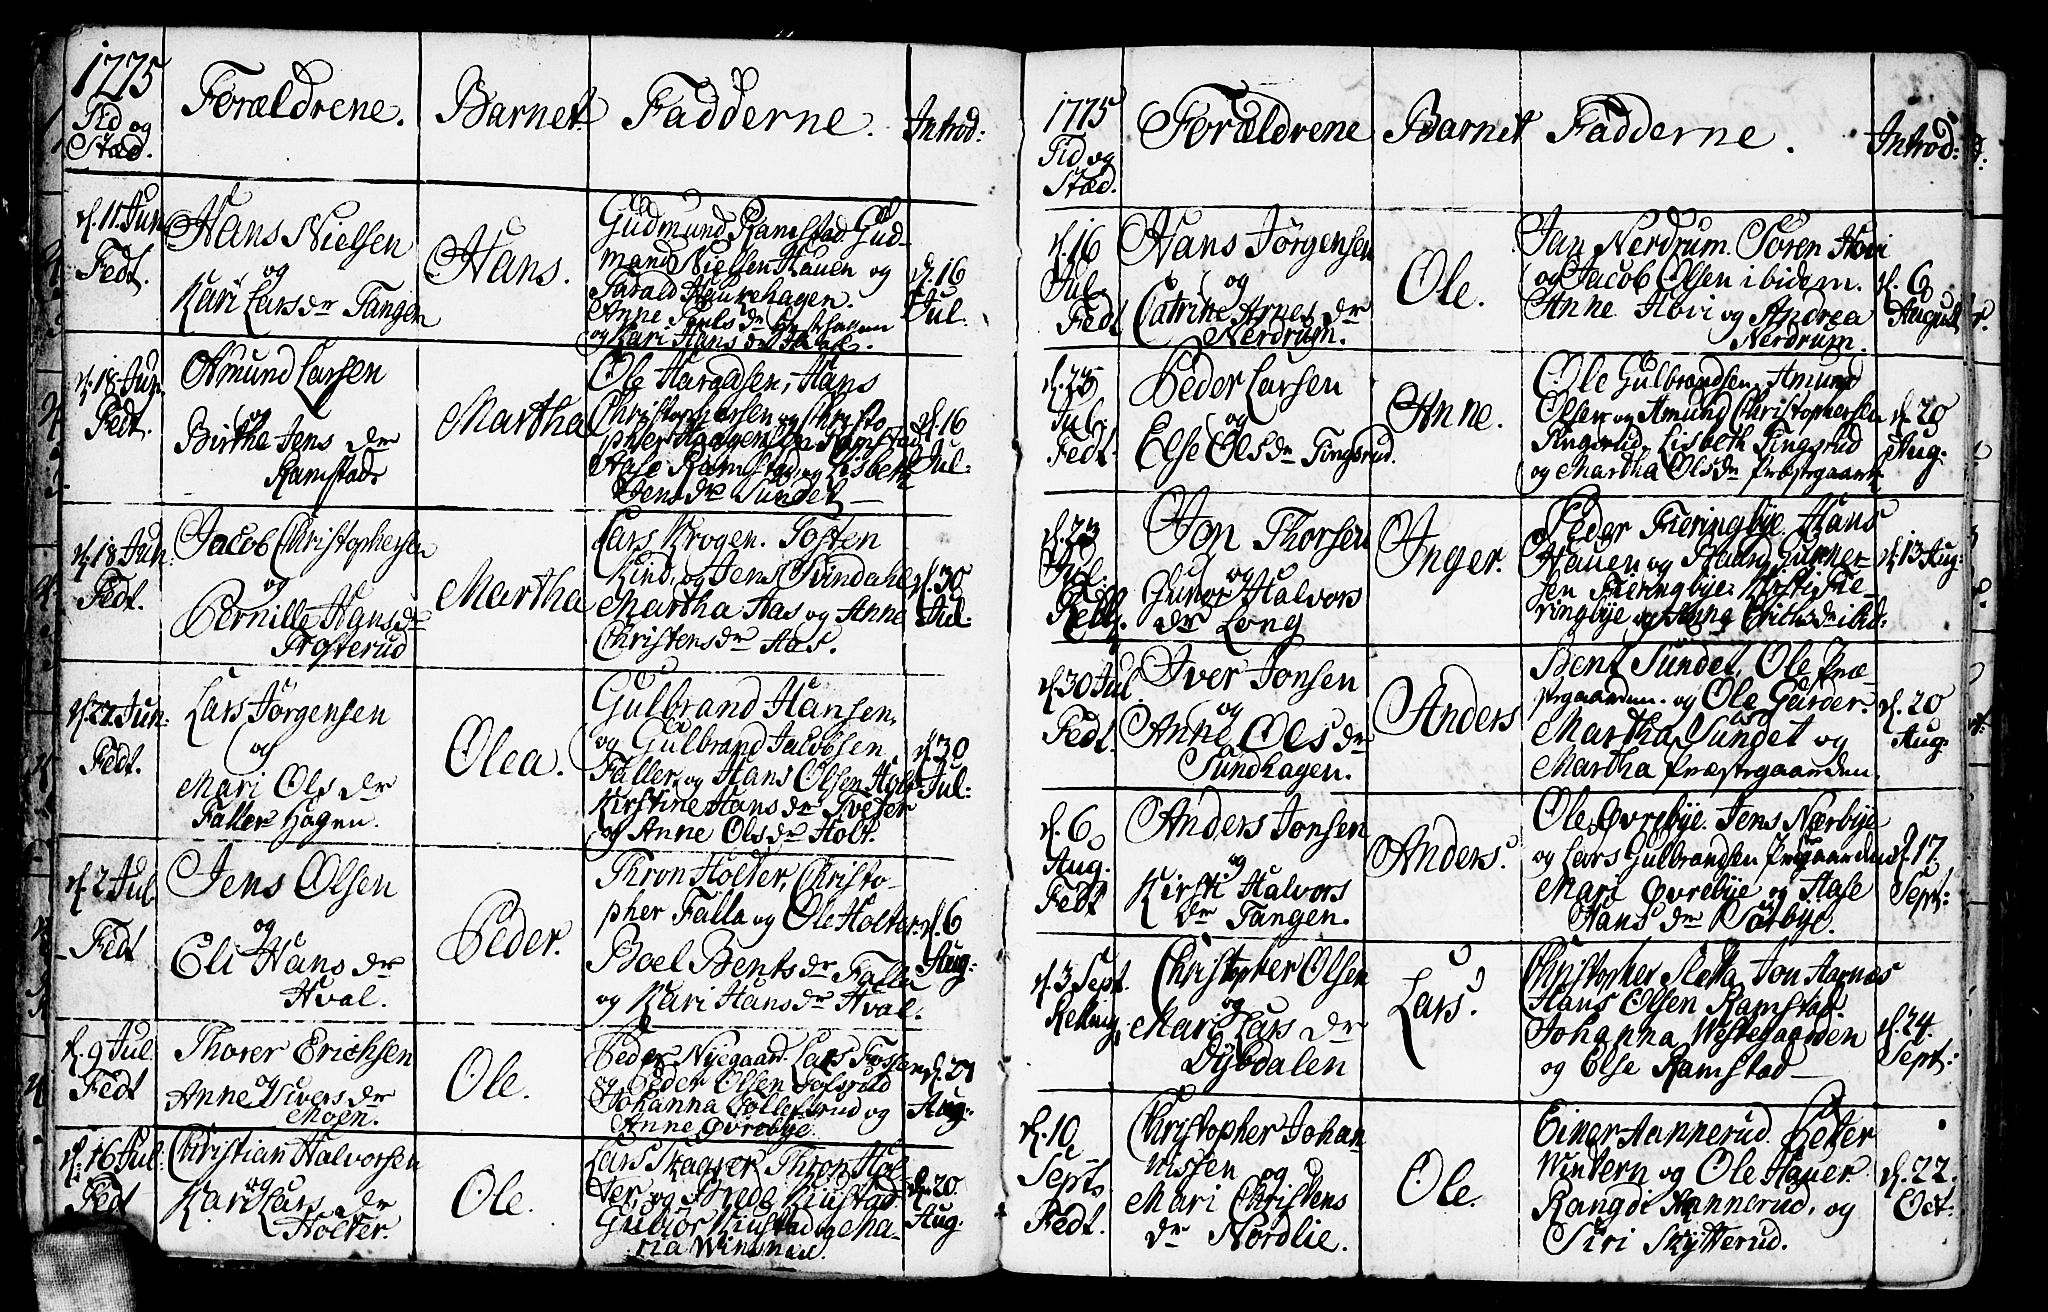 1775
Tid og
Stæd.
Forældrene.
Barnet.
Fadderne.
Introd:
d. 11. Jun.
Fedt.
Hans Nielsen
og
Kari Lars dr Tangen
Hans.
Gudmund Ramstad. Gud-
mand Nielsen Hauen og
Harald Haukehagen.
Anne
og Kari Hans dr
d. 16
Jul.
d. 18. Jun.
Fedt.
Amund Larsen
og
Birthe Jens dr
Ramstad
Martha
Ole Hansen, Hans
Christophersen og Christo
pher Haagensen Ramstad
Aase Ramstad og Lisbeth
Jens dr Sundet
d. 16
Jul.
d. 18 Jun.
Fedt.
Jacob Christophersen
og
Pernille Hans dr
Trosterud
Martha
Lars Krogen. Tosten
Kind. og Jens Svindahl
Martha Aas og Anne
Christens dr Aas.
d. 30
Jul.
d. 22 Jun.
Fedt.
Lars Jørgensen
og
Mari Ols dr
Faller Hagen.
Olea.
Gulbrand Hansen,
og Gulbrand Jacobsen
Faller, og Hans Olsen Holt
Kirstine Hans dr Tveter
og Anne Ols dr Holt.
d. 30
Jul:
d. 2 Jul.
Fedt
Jens Olsen
og
Eli Hans dr
Hval.
Peder.
Thron Holter, Christo-
pher Falla og Ole Holter.
Boel Bents dr Falla
og Kari Hans dr Hval.
d. 6
Aug:
d. 9 Jul.
Fedt
Thorer Erichsen
og
Anne Sivers dr
Moen.
Ole.
Peder Nyegaard. Lars Fossen
og Peder Olsen Tolsrud
Johanna Tollefsrud og
Anne Øvrebye.
Aug:
d. 16 Jul:
Fedt
Christian Halvorsen
og
Kari Lars dr
Holter.
Ole.
Lars Skaaret Thron Hol-
ter, og Brede Kiustad.
Gubiør Kiustad og Ma-
ria Winsnæs.
d. 20
Aug:
1775
Tid og
Stæd.
Forældrene
Barnet
Fadderne.
Introd:
d. 16
Jul.
Fedt
Hans Jørgensen
og
Catrine Arnes dr
Nerdrum.
Ole.
Jan Nerdrum. Søren Hovi
og Jacob Olsen ibidem.
Anne Hovi og Andrea
Nerdrum.
d. 6
August.
d. 23
Jul.
Fedt.
Peder Larsen
og
Else Ols dr Tingsrud.
Anne.
Ole Gulbrandsen, Amund
Olsen og Amund Christophersen
Lisbeth Tingsrud
og Martha Ols dr Præstegaarden
d. 20
Aug.
d. 23
Jul.
Relling.
Jon Thorsen
og
Gunor Halvors
dr Long
Inger.
Peder Fieringbye. Hans
Hauen og Haagen Gunner-
sen Fieringbye. Fie-
ringbye og Anne Erichs dr ibid:
d. 13 Aug:
d. 30 Jul
Fedt.
Iver Jonsen
og
Anne Ols dr
Sundhagen.
Anders
Bent Sundet, Ole Præ-
stegaarden. og Ole Garder.
Martha Sundet og
Martha Præstegaarden.
d. 20
Aug:
d. 6
Aug.
Fedt
Anders Jonsen
og
Kirsti Halvors
dr Tangen.
Anders.
Ole Øvrebye. Jens Nærbye
og Lars Gulbrandsen Præstegaarden
Mari Øvrebye og Aase
Hans dr Sørbye.
d. 17.
Sept:
d. 3 Sept.
Relling
Christopher Olsen
og
Mari Lars dr
Dybdalen
Lars.
Christopher Sletta Jon Aarnæs
Hans Olsen Ramstad.
Johanna Westegaarden
og Else Ramstad
d. 24.
Sept:
d. 10
Sept.
Fedt.
Christopher Johan-
nissen og
Mari Christens
dr Nordlie.
Ole.
Einer Hannerud. Petter
Wintern og Ole Hauer.
Rangdi Hannerud, og
Siri Skytterud.
d. 22.
Oct: